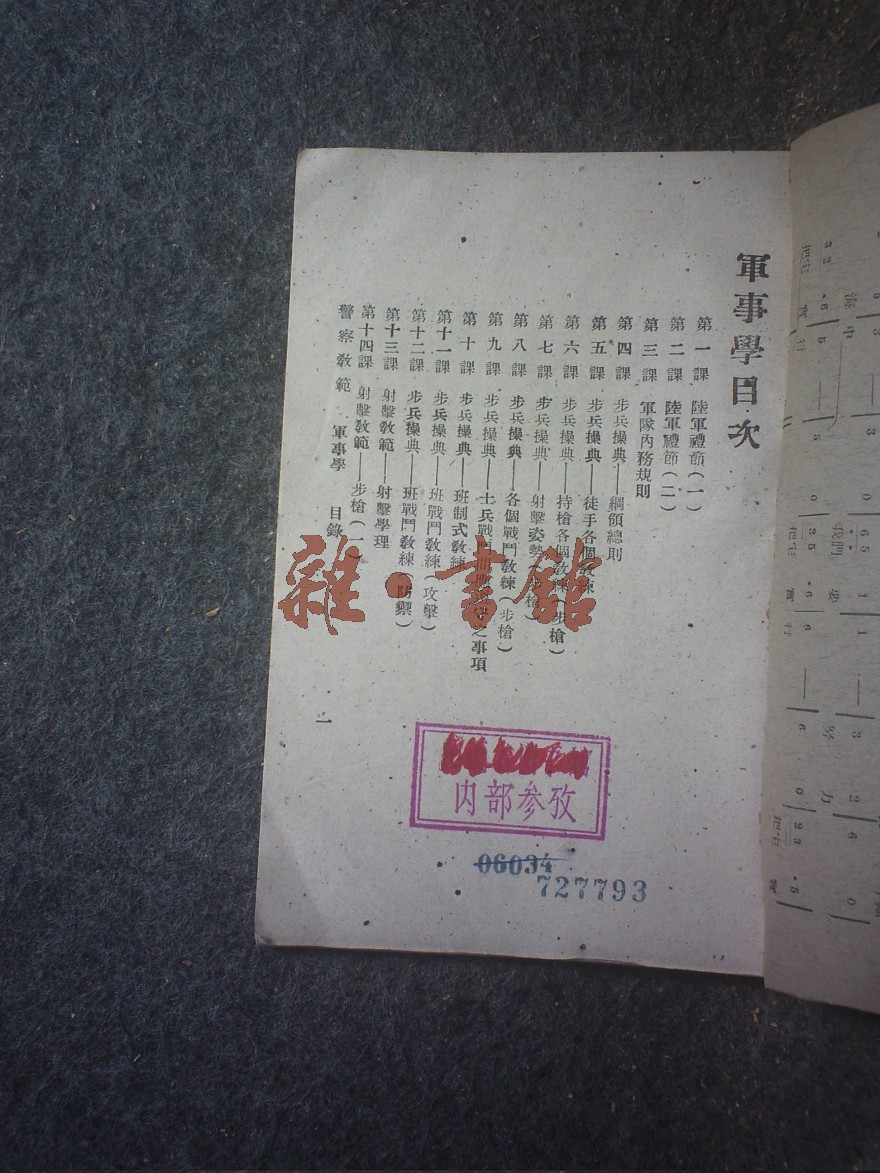 軍事學目次
第一課 陸軍禮節(一)
第二課 陸軍禮節(二)
第三課 軍隊內務規則
第四課 步兵操典——綱領總則
第五課 步兵操典——徒手各個教練
第六課 步兵操典——持槍各個教練(步槍)
第七課 步兵操典——射擊姿勢(步槍)
第八課 步兵操典——各個戰鬥教練(步槍)
第九課 步兵操典——士兵戰鬥間應遵守之事項
第十課 步兵操典——班制式教練
第十一課 步兵操典——班戰鬥教練(攻擊)
第十二課 步兵操典——班戰鬥教練(防禦)
第十三課 射擊教範——射擊學理
第十四課 射擊教範——步槍(一)
警察教範 軍事學 目錄 一
雜·書館
内部参攷
06034
727793
我們
努力
把它